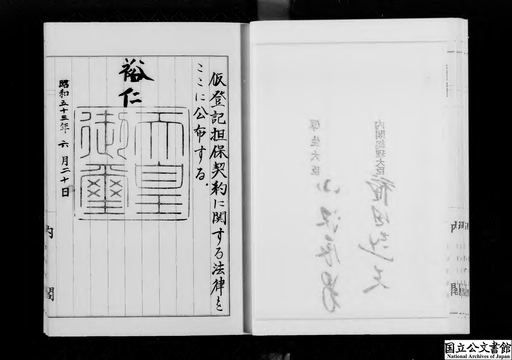 仮登記担保契約に関する法律を
ここに公布する。
裕仁
天皇
御璽
昭和五十三年六月二十日
内閣
内閣総理大臣
福田赳夫
厚生大臣
小沢辰男
国立公文書館
National Archives of Japan